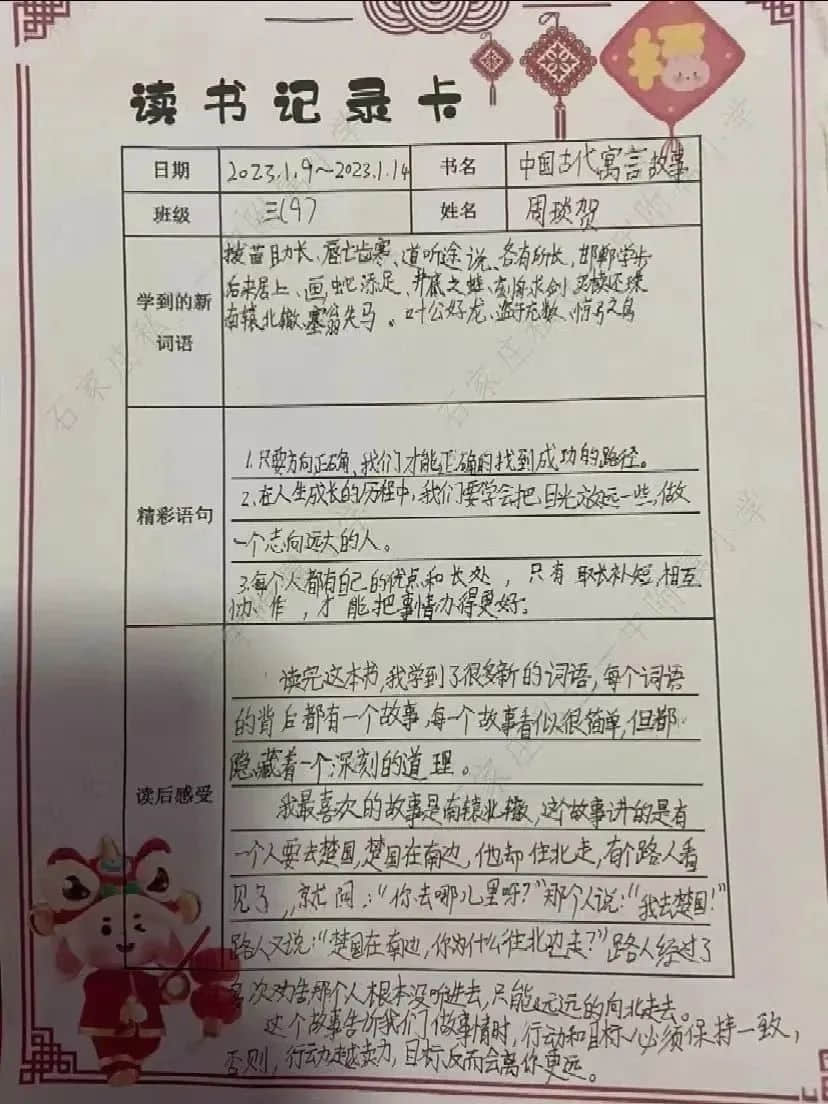 福
读书记录卡
日期 2023.1.9～2023.1.14 书名 中国古代寓言故事
班级 三(9) 姓名 周琰贺
学到的新词语
拔苗助长、唇亡齿寒、道听途说、各有所长、邯郸学步
后来居上、画蛇添足、井底之蛙、刻舟求剑、买椟还珠
南辕北辙、塞翁失马。叶公好龙、滥竽充数、惊弓之鸟
精彩语句
1.只要方向正确、我们才能正确的找到成功的路径。
2.在人生成长的历程中,我们要学会把目光放远一些,做
一个志向远大的人。
3.每个人都有自己的优点和长处，只有取长补短,相互
协作，才能把事情办得更好。
读后感受
读完这本书,我学到了很多新的词语,每个词语
的背后都有一个故事,每一个故事看似很简单,但都
隐藏着一个深刻的道理。
我最喜欢的故事是南辕北辙,这个故事讲的是有
一个人要去楚国,楚国在南边,他却往北走,有个路人看
见了,就问:“你去哪儿里呀?”那个人说:“我去楚国!”
路人又说:“楚国在南边,你为什么往北边走?”路人经过了
多次劝告那个人根本没听进去,只能远远的向北走去。
这个故事告诉我们做事情时,行动和目标必须保持一致,
否则,行动越卖力,目标反而会离你更远。